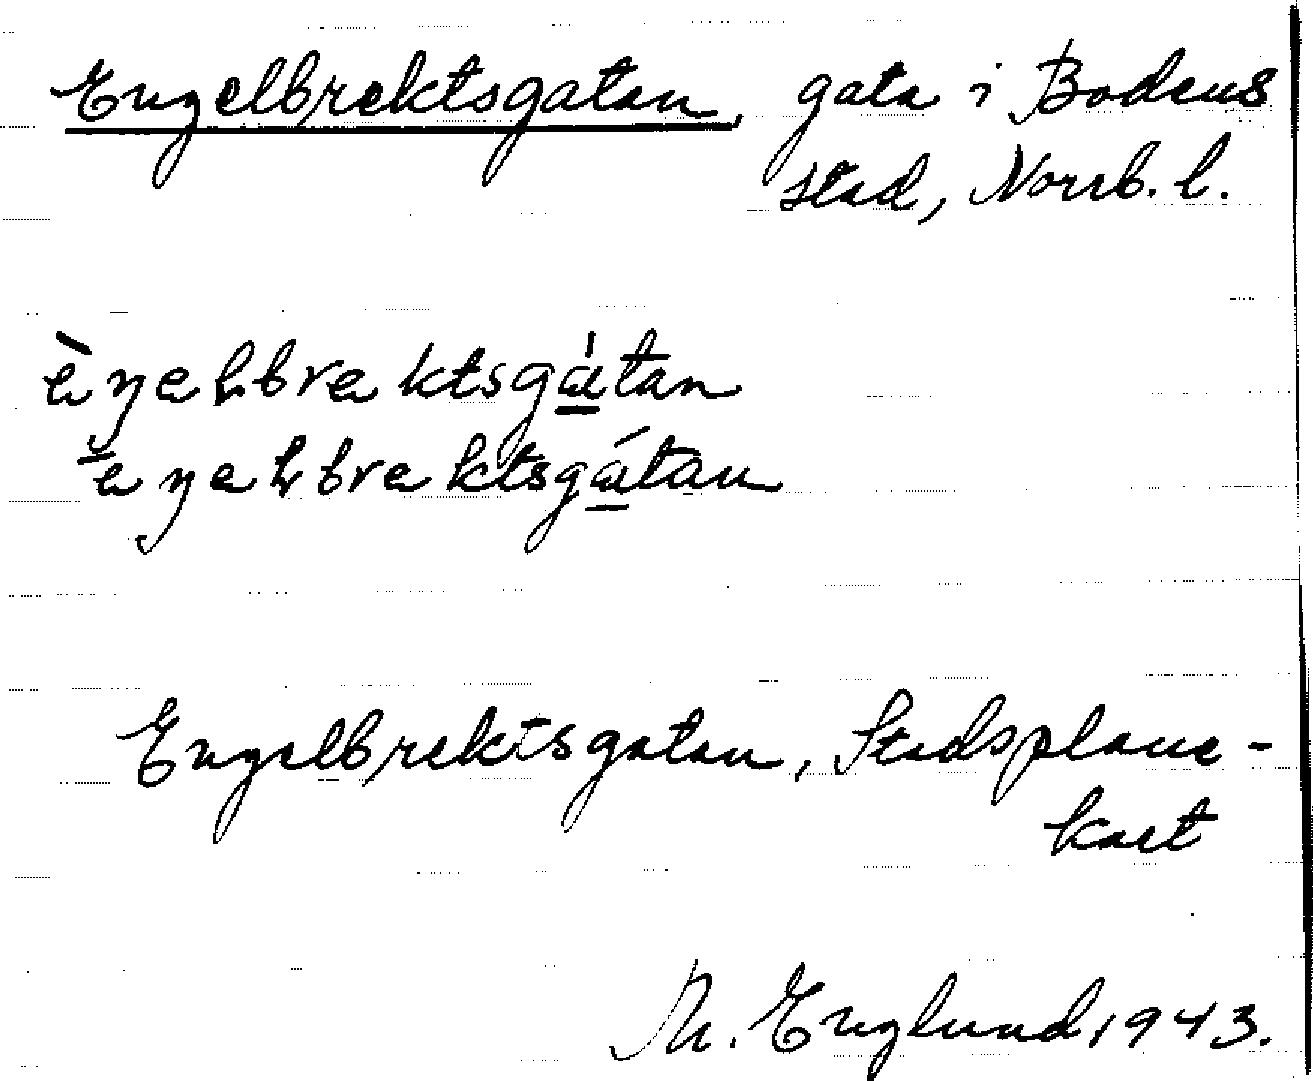 Engelbrektsgatan, gata i Bodens
stad, Norrb. l.
èŋelbrektsgàtan
èŋelbrektsgátan
Engelbrektsgatan, Stadsplane-
kart
Englund 1943.